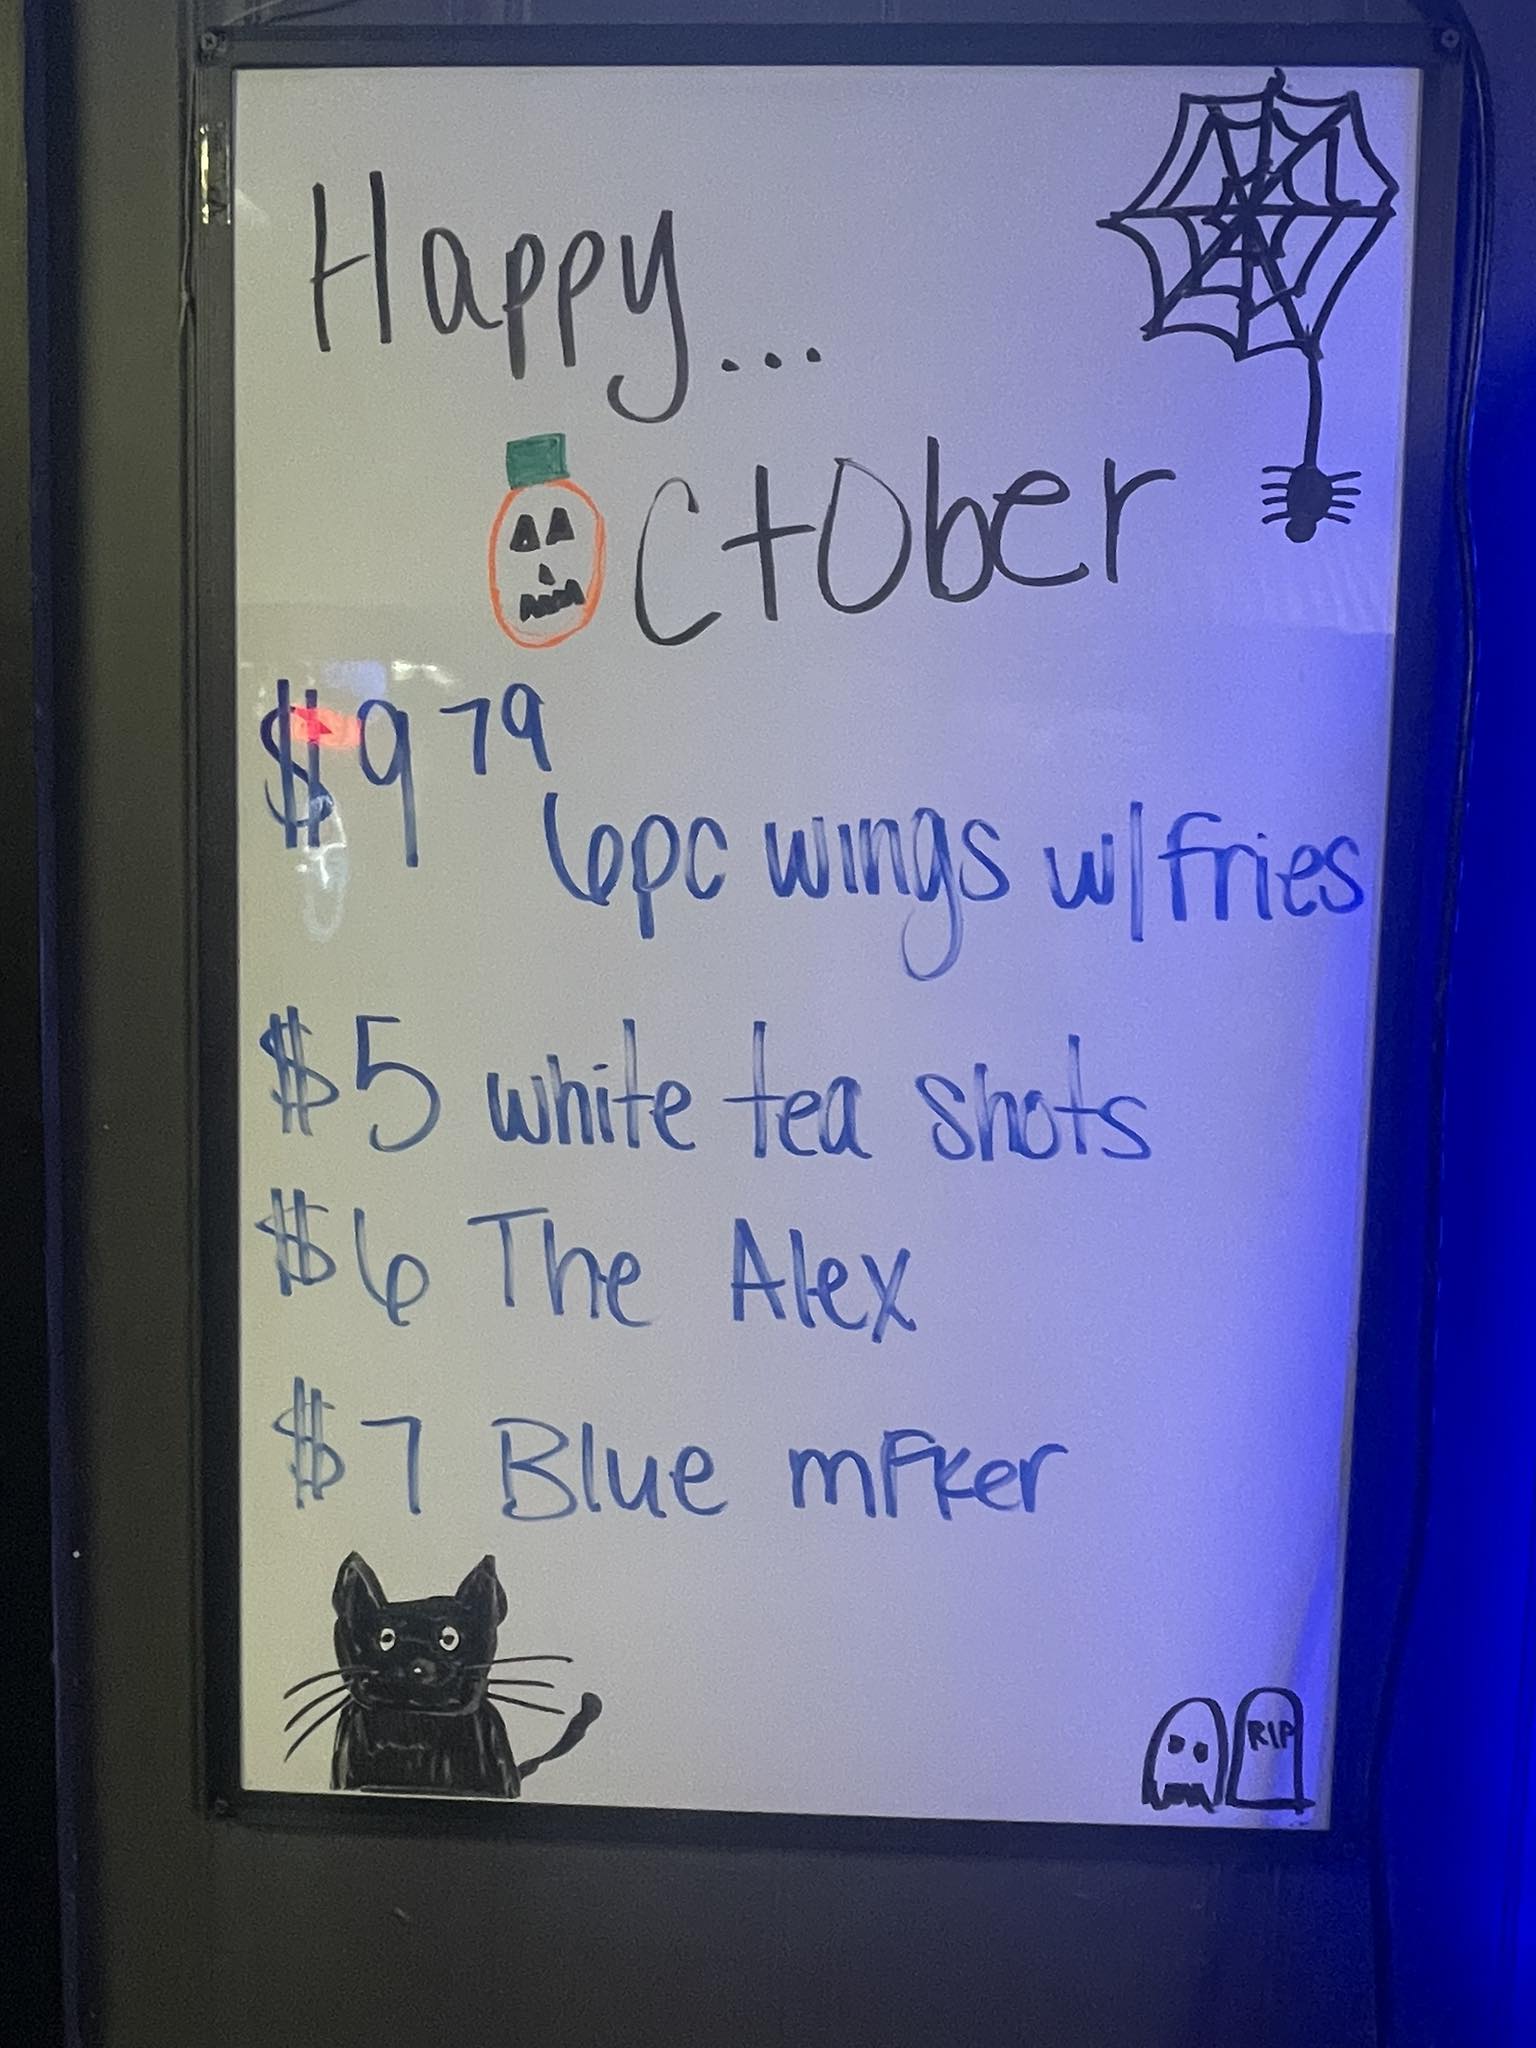 Happy...
OctOber
$9 79
6pc wings w/fries
$5 white tea shots
$6 The Alex
$7 Blue mFker
RIP